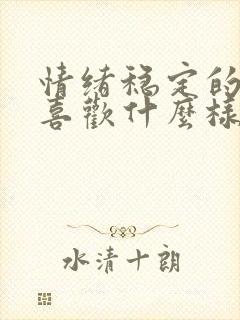 情绪稳定的
喜歡什麼樣
水清十朗